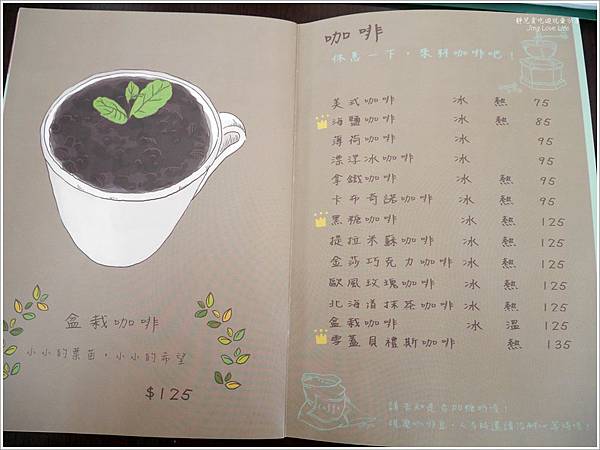 盆栽咖啡
小小的葉苗，小小的希望
$125
Jing Love Life
咖啡
休息一下，來杯咖啡吧！
美式咖啡 冰 熱 75
海鹽咖啡 冰 熱 85
薄荷咖啡 冰 95
漂浮冰咖啡 冰 95
拿鐵咖啡 冰 熱 95
卡布奇諾咖啡 冰 熱 95
黑糖咖啡 冰 熱 125
提拉米蘇咖啡 冰 熱 125
金莎巧克力咖啡 冰 熱 125
歐風玫瑰咖啡 冰 熱 125
北海道抹茶咖啡 冰 熱 125
盆栽咖啡 冰 溫 125
雪蓋貝禮斯咖啡 熱 135
coffee
請告知是否加糖奶唷！
現磨咖啡豆，人多時還請耐心等待唷！